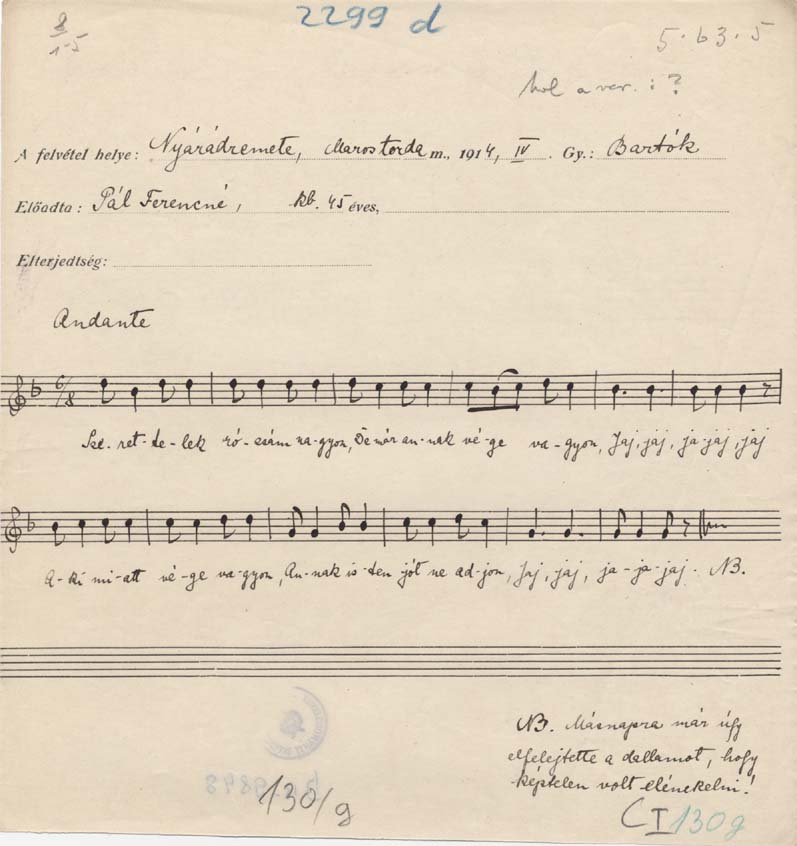 2299 d
8
1-5
5.63.5
hol a var. : ?
A felvétel helye: Nyárádremete, Marostorda m., 1914, IV. Gy.: Bartók
Előadta: Pál Ferencné, kb. 45 éves,
Elterjedtség:
Andante
6/8
Sze-ret-te-lek ró-zsám na-gyon, De már an-nak vé-ge va-gyon, Jaj, jaj, ja-jaj, jaj
A-ki mi-att vé-ge va-gyon, An-nak is-ten jót ne ad-jon, Jaj, jaj, ja-ja-jaj. NB.
NB. Másnapra már úgy
elfelejtette a dallamot, hogy
képtelen volt elénekelni!
130/g
C I 130g